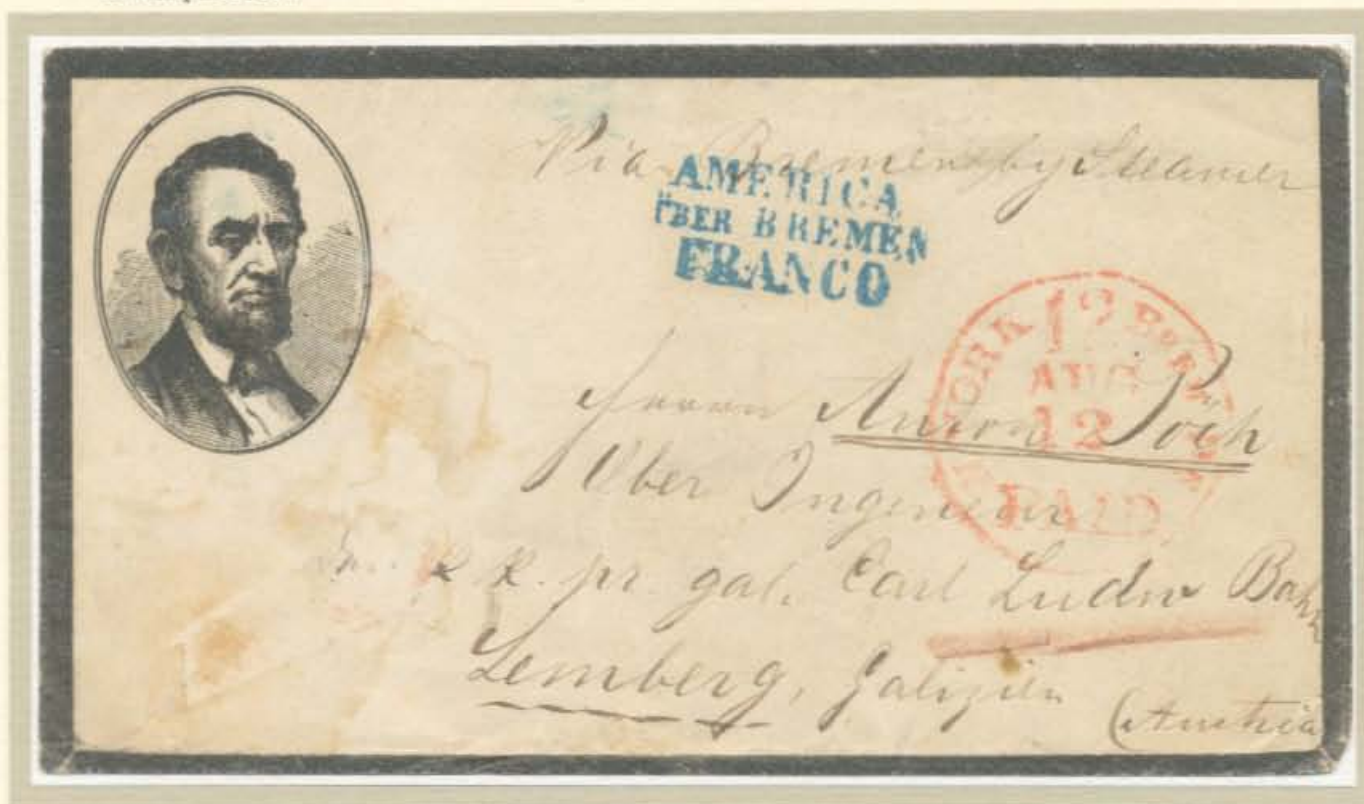 Via Bremen by Steamer
AMERICA
ÜBER BREMEN
FRANCO
YORK 12 Br. P
AUG
12
PAID
Herrn Anton Pöch
Ober Ingenieur
k. k. pr. gal. Carl Ludw Bahn
Lemberg, Galizien
(Austria